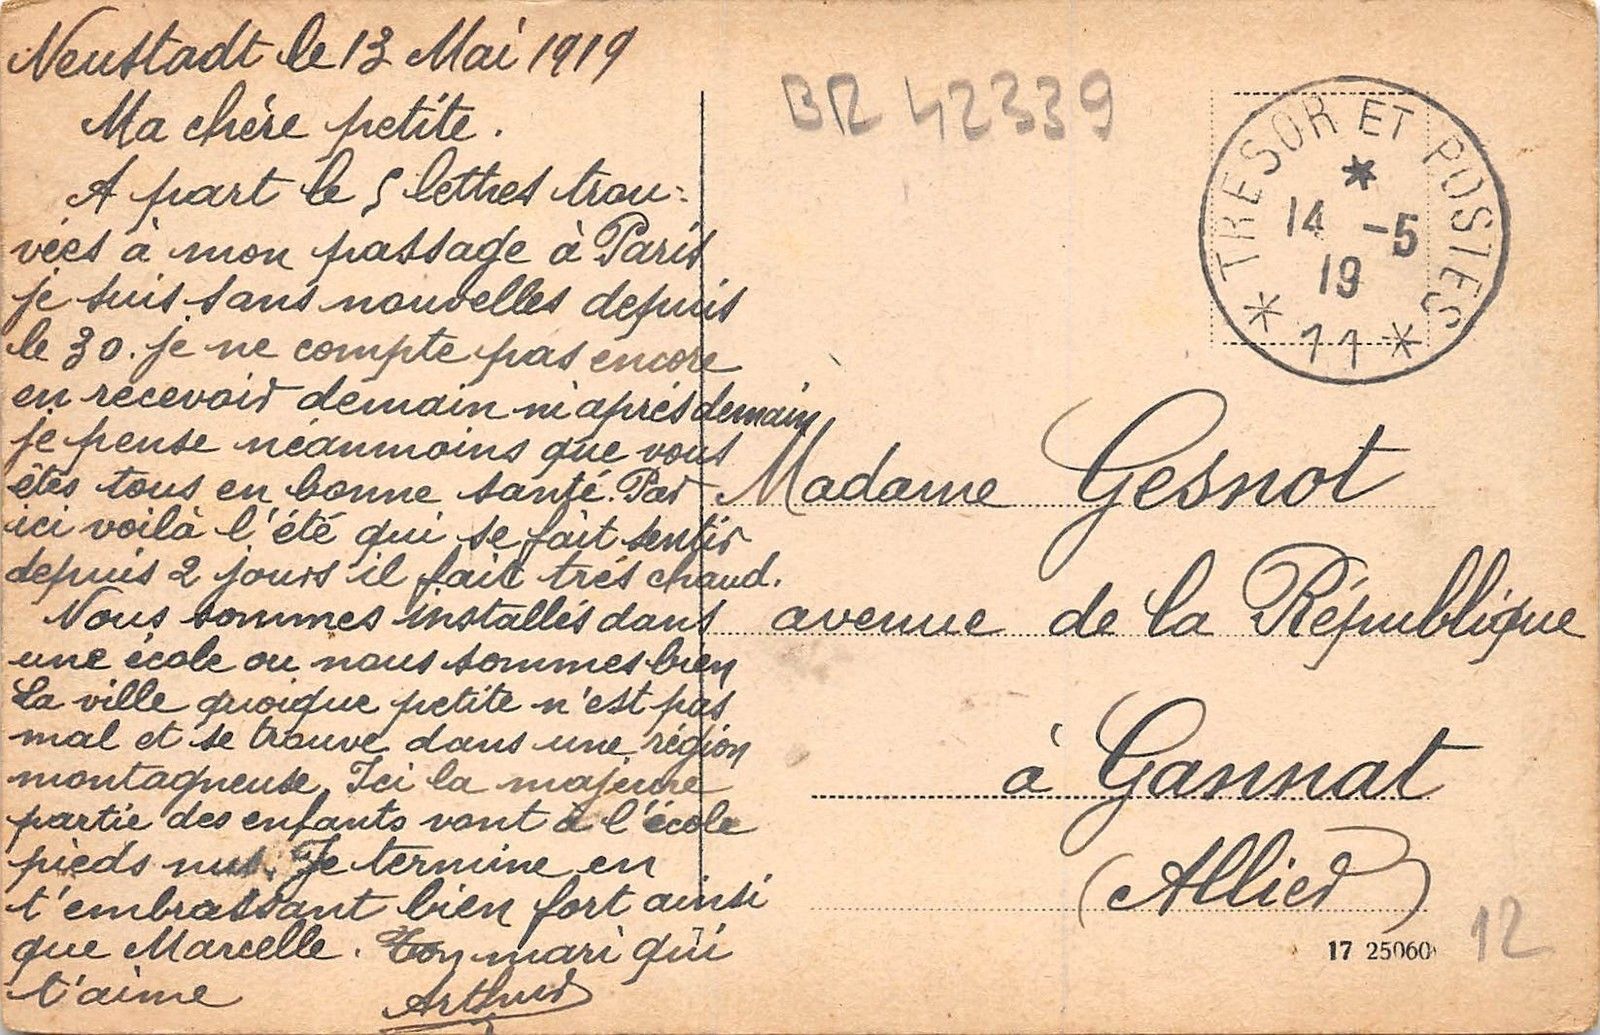 Neustadt le 13 Mai 1919
Ma chère petite.
A part le 5 lettres trou-
vées à mon passage à Paris
je suis sans nouvelles depuis
le 30. je ne compte pas encore
en recevoir demain ni après demain
je pense néanmoins que vous
êtes tous en bonne santé. Par
ici voilà l'été qui se fait sentir
depuis 2 jours il fait très chaud.
Nous sommes installés dans
une école ou nous sommes bien
La ville quoique petite n'est pas
mal et se trouve dans une région
montagneuse. Ici la majeure
partie des enfants vont à l'école
pieds nus. Je termine en
t'embrassant bien fort ainsi
que Marcelle. Ton mari qui
t'aime
Arthur
BR 42339
TRESOR ET POSTES
14 -5
19
* 11 *
Madame Gesnot
avenue de la République
à Gannat
(Allier)
17 25060
12